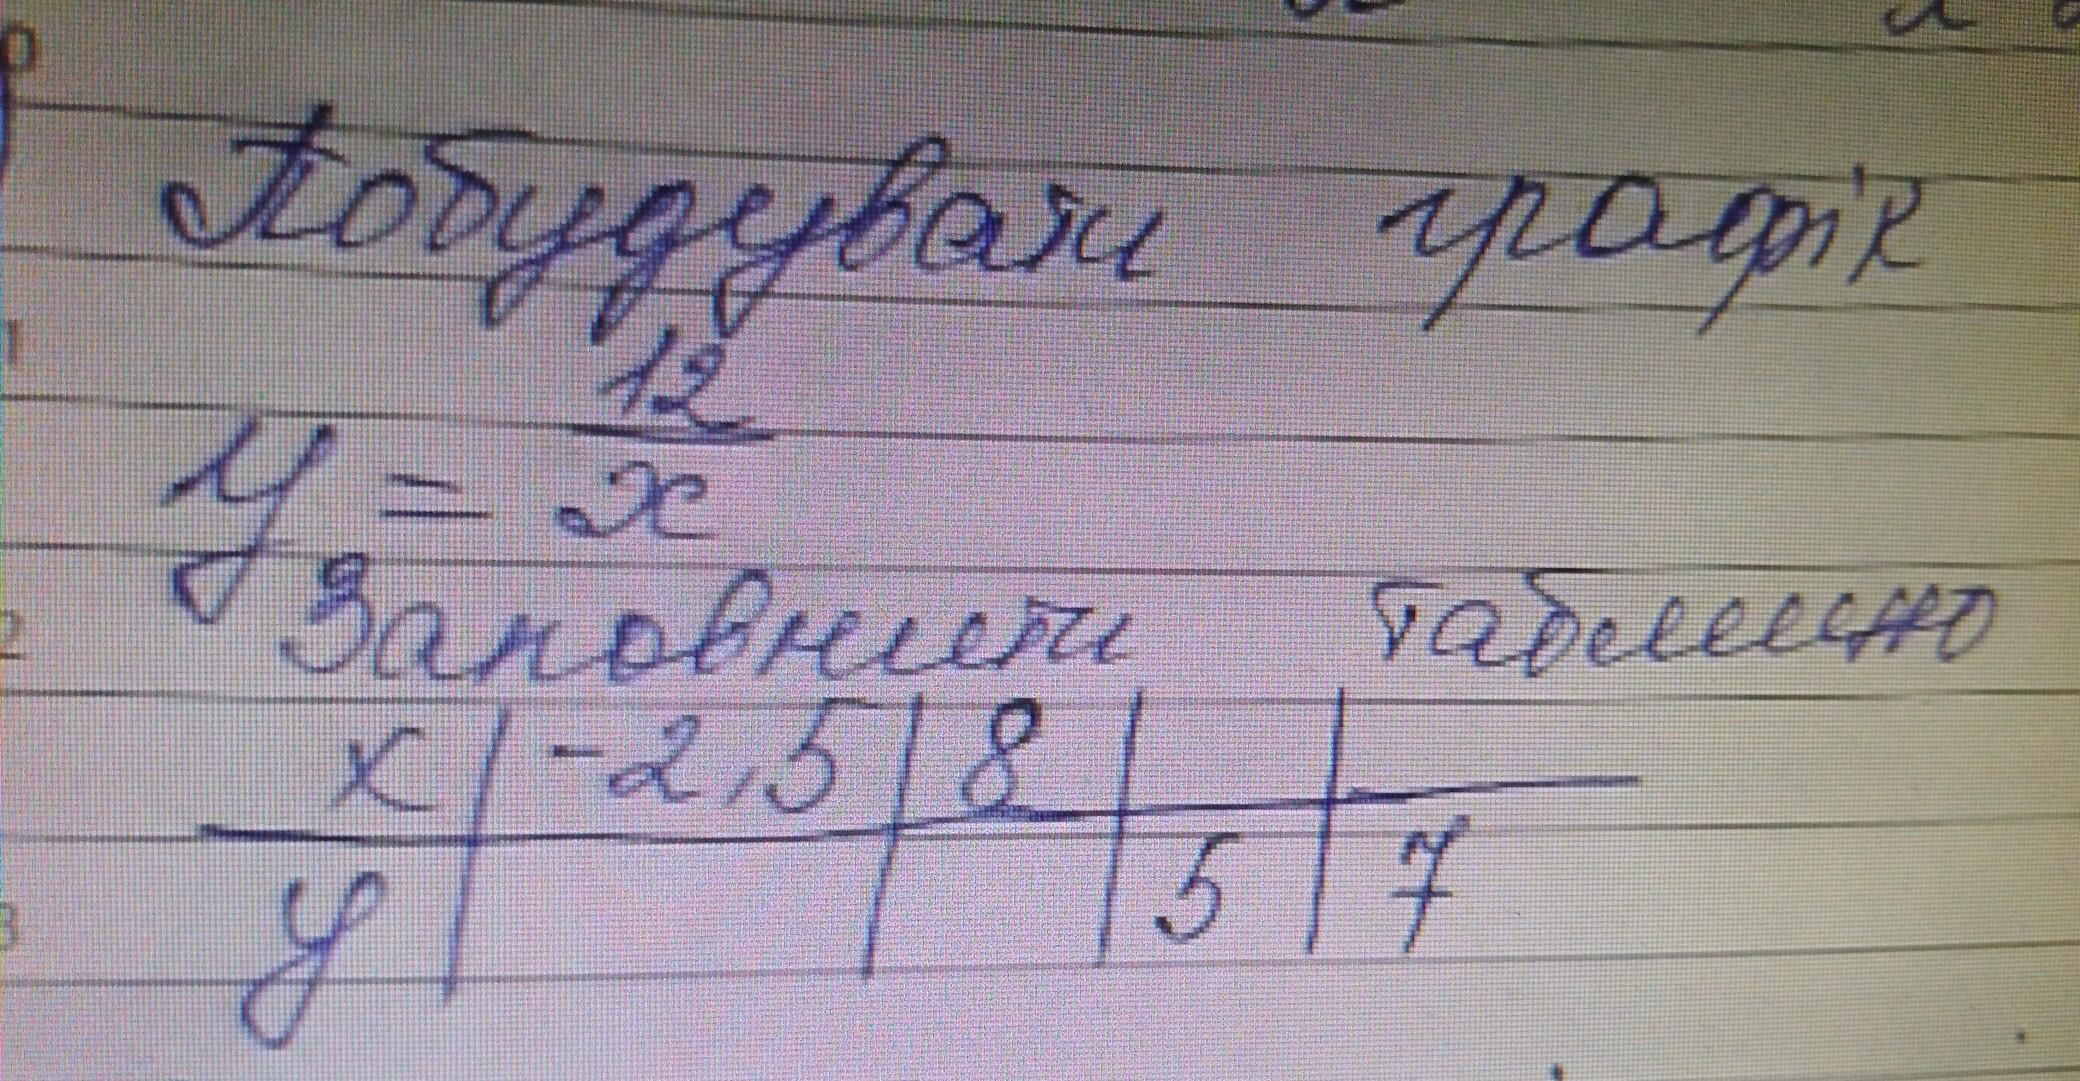 Побудувати графік
y = 12/x
Заповнити таблицю
x | -2,5 | 8 | |
y | | | 5 | 7